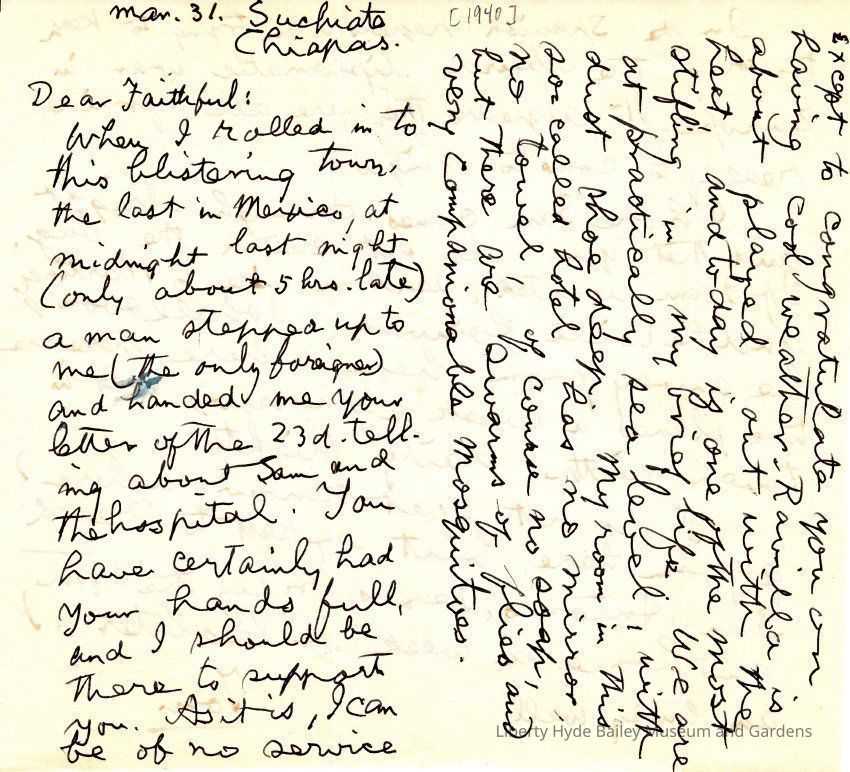 mar. 31. Suchiate
Chiapas.
[1940]
Dear Faithful:
When I rolled in to
this blistering town,
the last in Mexico, at
midnight last night
(only about 5 hrs. late)
a man stepped up to
me (the only foreigner)
and handed me your
letter of the 23d. tell-
ing about Sam and
the hospital. You
have certainly had
your hands full,
and I should be
there to support
you. As it is, I can
be of no service
Except to congratulate you on
having cool weather. Ravilla is
about played out with the
heat and today is one of the most
stifling in my brief life. We are
at practically sea level, with
dust shoe deep. My room in this
so-called hotel has no mirror,
no towel, of course no soap,
but there are swarms of flies and
very companionable mosquitoes.
Liberty Hyde Bailey Museum and Gardens